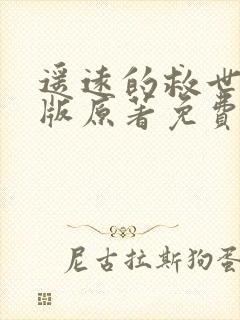 遥远的救世
版原著免费
尼古拉斯狗蛋